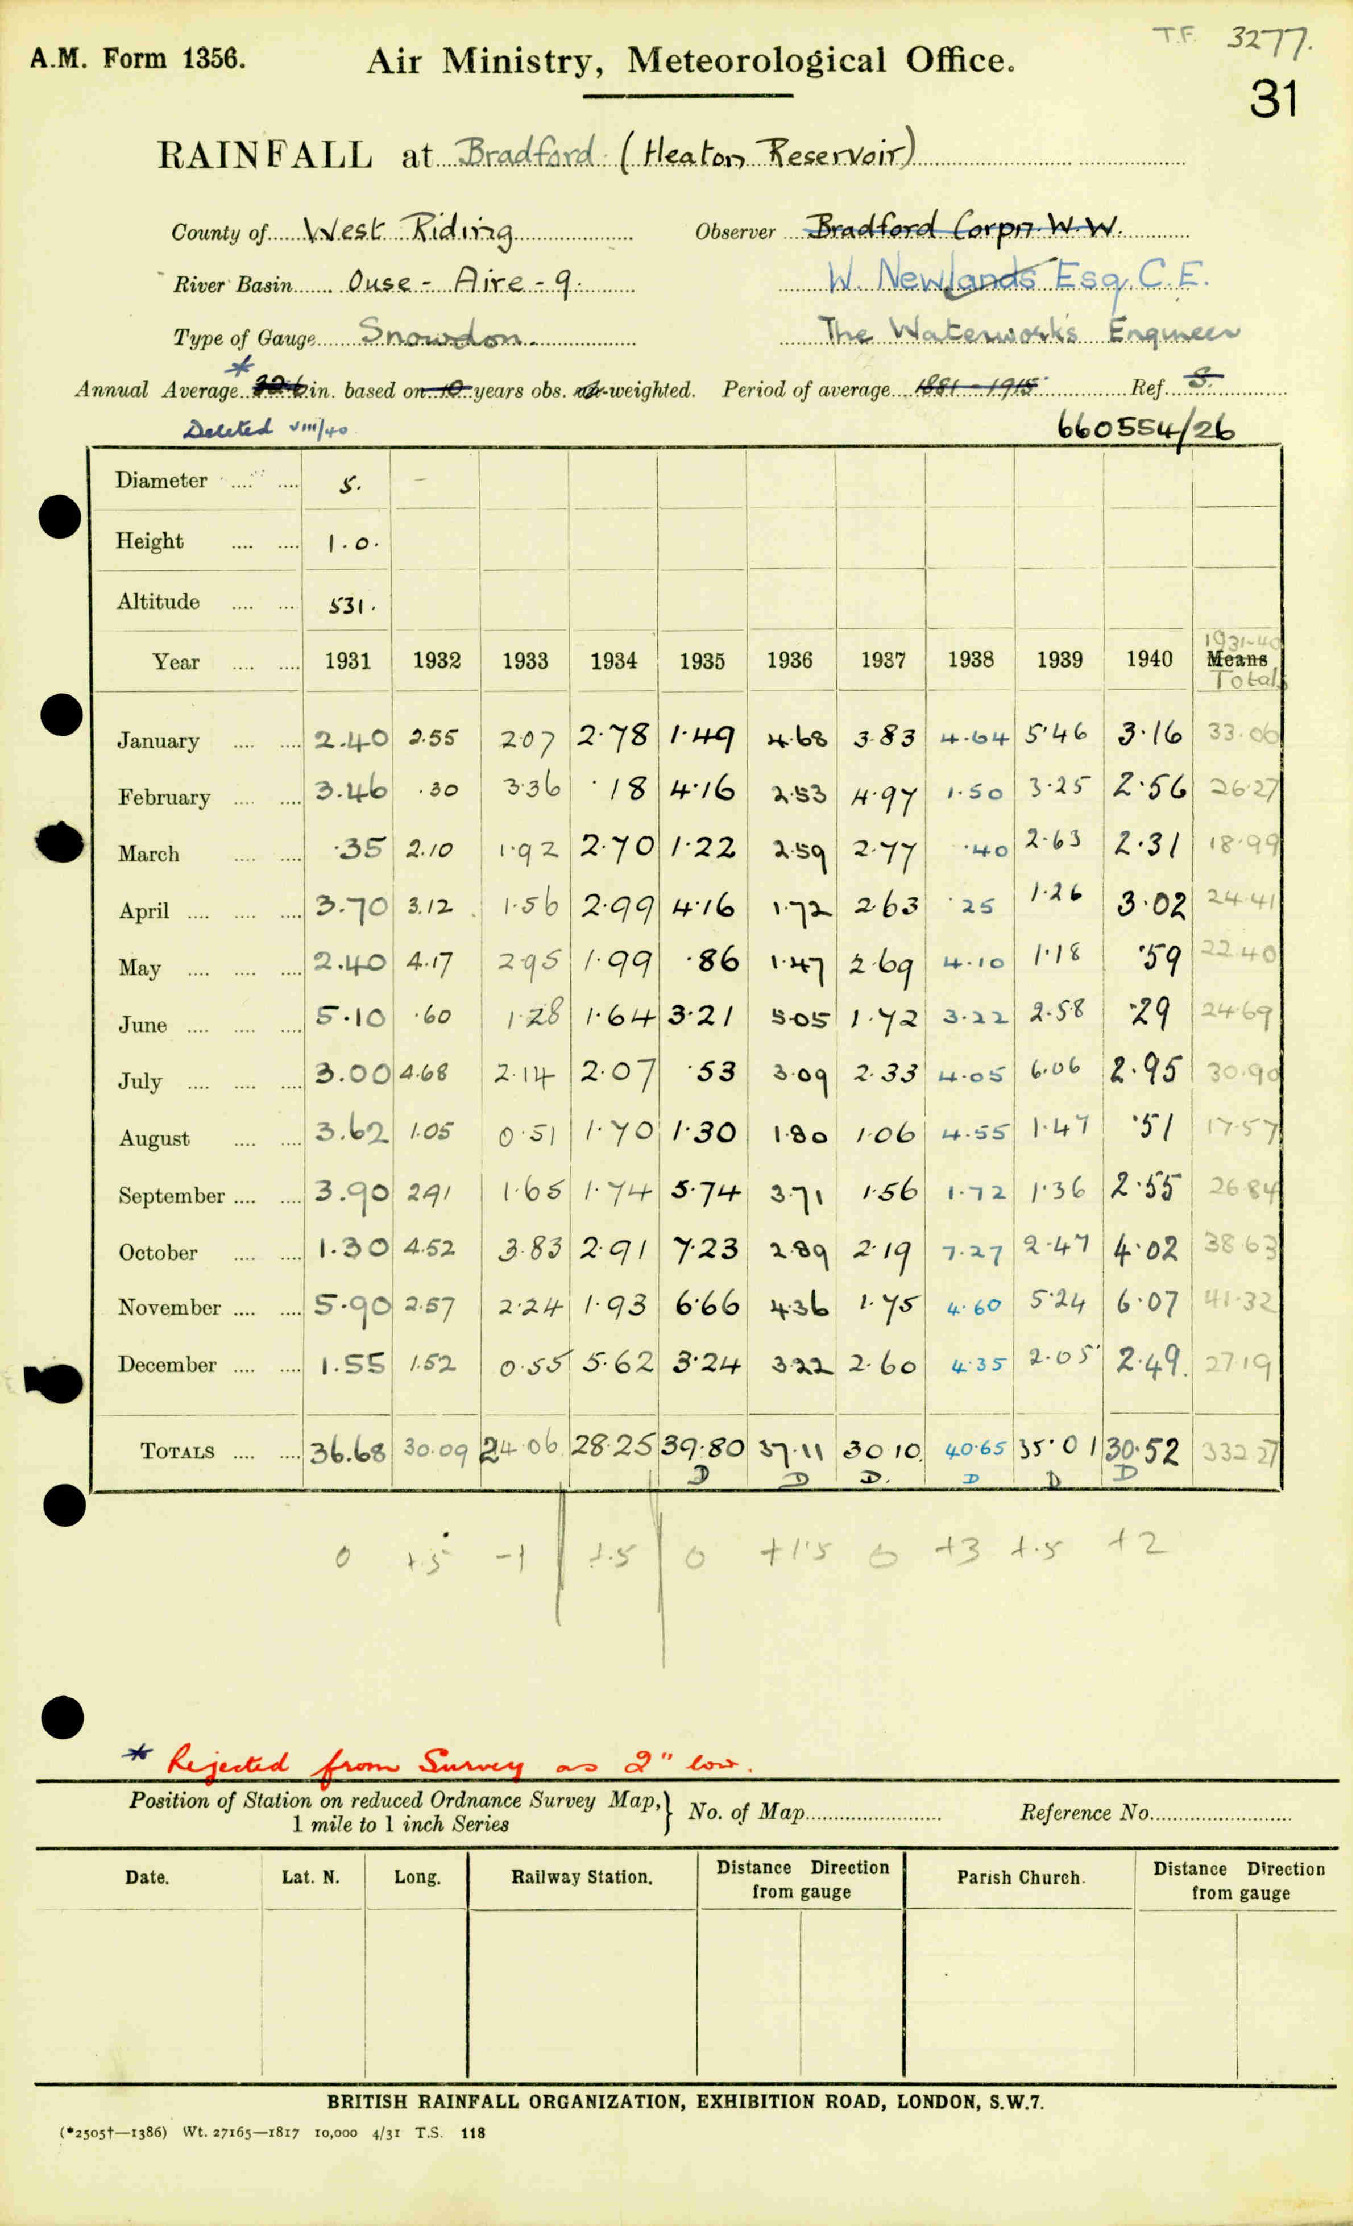 T.F. 3277.
A.M. Form 1356. Air Ministry, Meteorological Office.
31
RAINFALL at Bradford (Heaton Reservoir)
County of West Riding Observer Bradford Corpn W.W.
River Basin Ouse - Aire - 9. W. Newlands Esq. C.E.
Type of Gauge Snowdon. The Waterworks Engineer
Annual Average * in. based on 10 years obs. weighted. Period of average 1881 - 1915 Ref. S.
Deleted VIII/40 660554/26
Diameter 5. -
Height 1.0.
Altitude 531.
1931-40
Year 1931 1932 1933 1934 1935 1936 1937 1938 1939 1940 Means
Totals
January 2.40 2.55 2.07 2.78 1.49 4.68 3.83 4.64 5.46 3.16 33.06
February 3.46 .30 3.36 .18 4.16 2.53 4.97 1.50 3.25 2.56 26.27
March .35 2.10 1.92 2.70 1.22 2.59 2.77 .40 2.63 2.31 18.99
April 3.70 3.12 1.56 2.99 4.16 1.72 2.63 .25 1.26 3.02 24.41
May 2.40 4.17 2.95 1.99 .86 1.47 2.69 4.10 1.18 .59 22.40
June 5.10 .60 1.28 1.64 3.21 5.05 1.72 3.22 2.58 .29 24.69
July 3.00 4.68 2.14 2.07 .53 3.09 2.33 4.05 6.06 2.95 30.90
August 3.62 1.05 0.51 1.70 1.30 1.80 1.06 4.55 1.47 .51 17.57
September 3.90 2.91 1.65 1.74 5.74 3.71 1.56 1.72 1.36 2.55 26.84
October 1.30 4.52 3.83 2.91 7.23 2.89 2.19 7.27 2.47 4.02 38.63
November 5.90 2.57 2.24 1.93 6.66 4.36 1.75 4.60 5.24 6.07 41.32
December 1.55 1.52 0.55 5.62 3.24 3.22 2.60 4.35 2.05 2.49. 27.19
TOTALS 36.68 30.09 24.06 28.25 39.80 37.11 30.10 40.65 35.01 30.52 332.27
D D D. D D D
0 +.5 -1 +.5 0 +1.5 0 +3 +.5 +2
* Rejected from Survey as 2" low.
Position of Station on reduced Ordnance Survey Map,} No. of Map Reference No.
1 mile to 1 inch Series
Date. Lat. N. Long. Railway Station. Distance Direction from gauge Parish Church. Distance Direction from gauge
BRITISH RAINFALL ORGANIZATION, EXHIBITION ROAD, LONDON, S.W.7.
(*2505†—1386) Wt. 27165—1817 10,000 4/31 T.S. 118